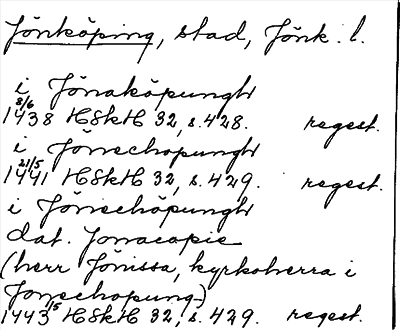 Jönköping, stad, Jönk. l.
i Jönaköpungh
8/6 1438 HSkH 32, s. 428. regest.
i Jönechopungh
21/5 1441 HSkH 32, s. 429. regest.
i Jönechöpungh
dat. Jonacopie
(herr Jönissa, kyrkoherra i
Jonechopung)
1443 1/5 HSkH 32, s. 429. regest.